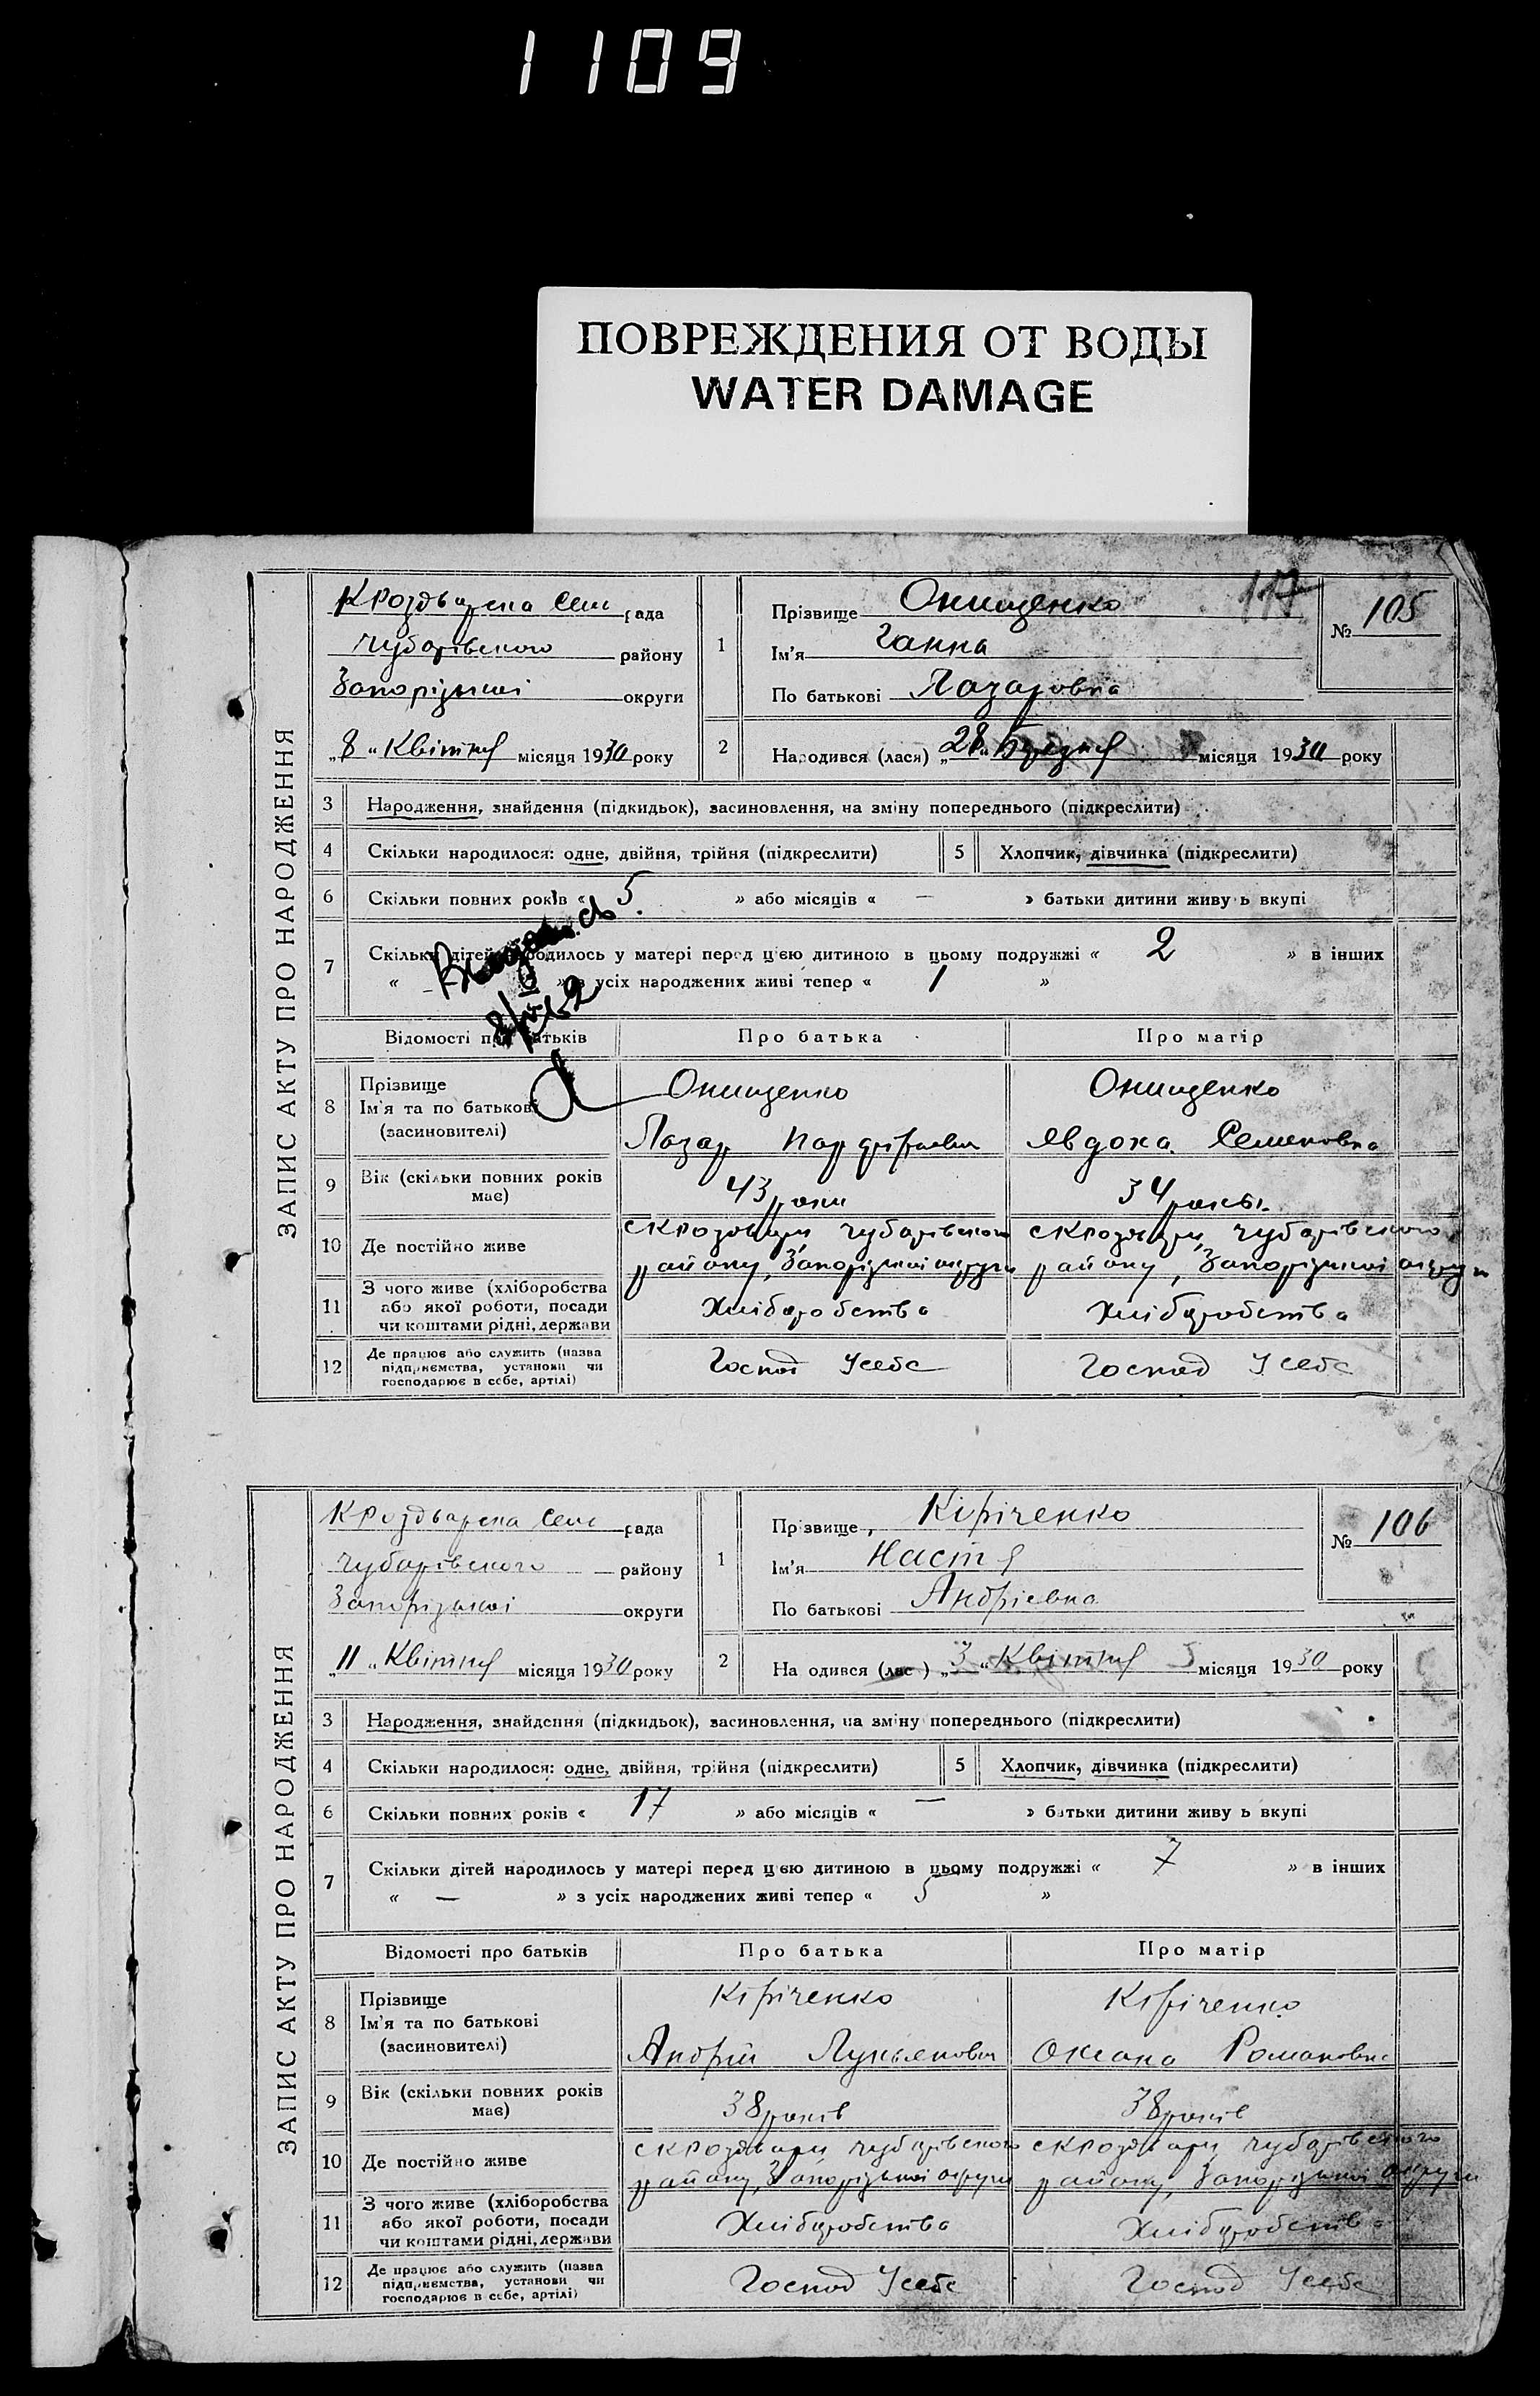 1109
ПОВРЕЖДЕНИЯ ОТ ВОДЫ
WATER DAMAGE
ЗАПИС АКТУ ПРО НАРОДЖЕННЯ
рада
Чубарівського району
Запорізької округи
„8“ Квітня місяця 1930 року
117
№ 105
1 Прізвище Онищенко
Ім'я Ганна
По батькові Лазаровна
2 Народився (лася) „28“ Березня місяця 1930 року
3 Народження, знайдення (підкидьок), засиновлення, на зміну попереднього (підкреслити)
4 Скільки народилося: одне, двійня, трійня (підкреслити) 5 Хлопчик, дівчинка (підкреслити)
6 Скільки повних років « 5 » або місяців « — » батьки дитини живу ь вкупі
7 Скільки дітей народилось у матері перед цею дитиною в цьому подружжі « 2 » в інших
« — » з усіх народжених живі тепер « 1 »
Відомості про батьків Про батька Про матір
8 Прізвище Онищенко Онищенко
Ім'я та по батькові
(засиновителі) Лазар Явдоха Семеновна
9 Вік (скільки повних років має) 43 роки 34 роки
10 Де постійно живе Чубарівського Чубарівського
району, Запорізької округи району, Запорізької округи
11 З чого живе (хліборобства
або якої роботи, посади
чи коштами рідні, держави Хліборобства Хліборобства
12 Де працює або служить (назва
підприємства, установи чи
господарює в себе, артілі) Господ Усебе Господ Усебе
ЗАПИС АКТУ ПРО НАРОДЖЕННЯ
рада
Чубарівського району
Запорізької округи
„11“ Квітня місяця 1930 року
№ 106
1 Прізвище Кіріченко
Ім'я Настя
По батькові Андрієвна
2 На одився (лас ) „3“ Квітня місяця 1930 року
3 Народження, знайдення (підкидьок), засиновлення, на зміну попереднього (підкреслити)
4 Скільки народилося: одне, двійня, трійня (підкреслити) 5 Хлопчик, дівчинка (підкреслити)
6 Скільки повних років « 17 » або місяців « — » батьки дитини живу ь вкупі
7 Скільки дітей народилось у матері перед цею дитиною в цьому подружжі « 7 » в інших
« — » з усіх народжених живі тепер « 5 »
Відомості про батьків Про батька Про матір
8 Прізвище Кіріченко Кіріченко
Ім'я та по батькові
(засиновителі) Андрій Лукьянович Оксана Романовна
9 Вік (скільки повних років має) 38 років 38 років
10 Де постійно живе Чубарівського Чубарівського
району, Запорізької округи району, Запорізької округи
11 З чого живе (хліборобства
або якої роботи, посади
чи коштами рідні, держави Хліборобства Хліборобства
12 Де працює або служить (назва
підприємства, установи чи
господарює в себе, артілі) Господ Усебе Господ Усебе